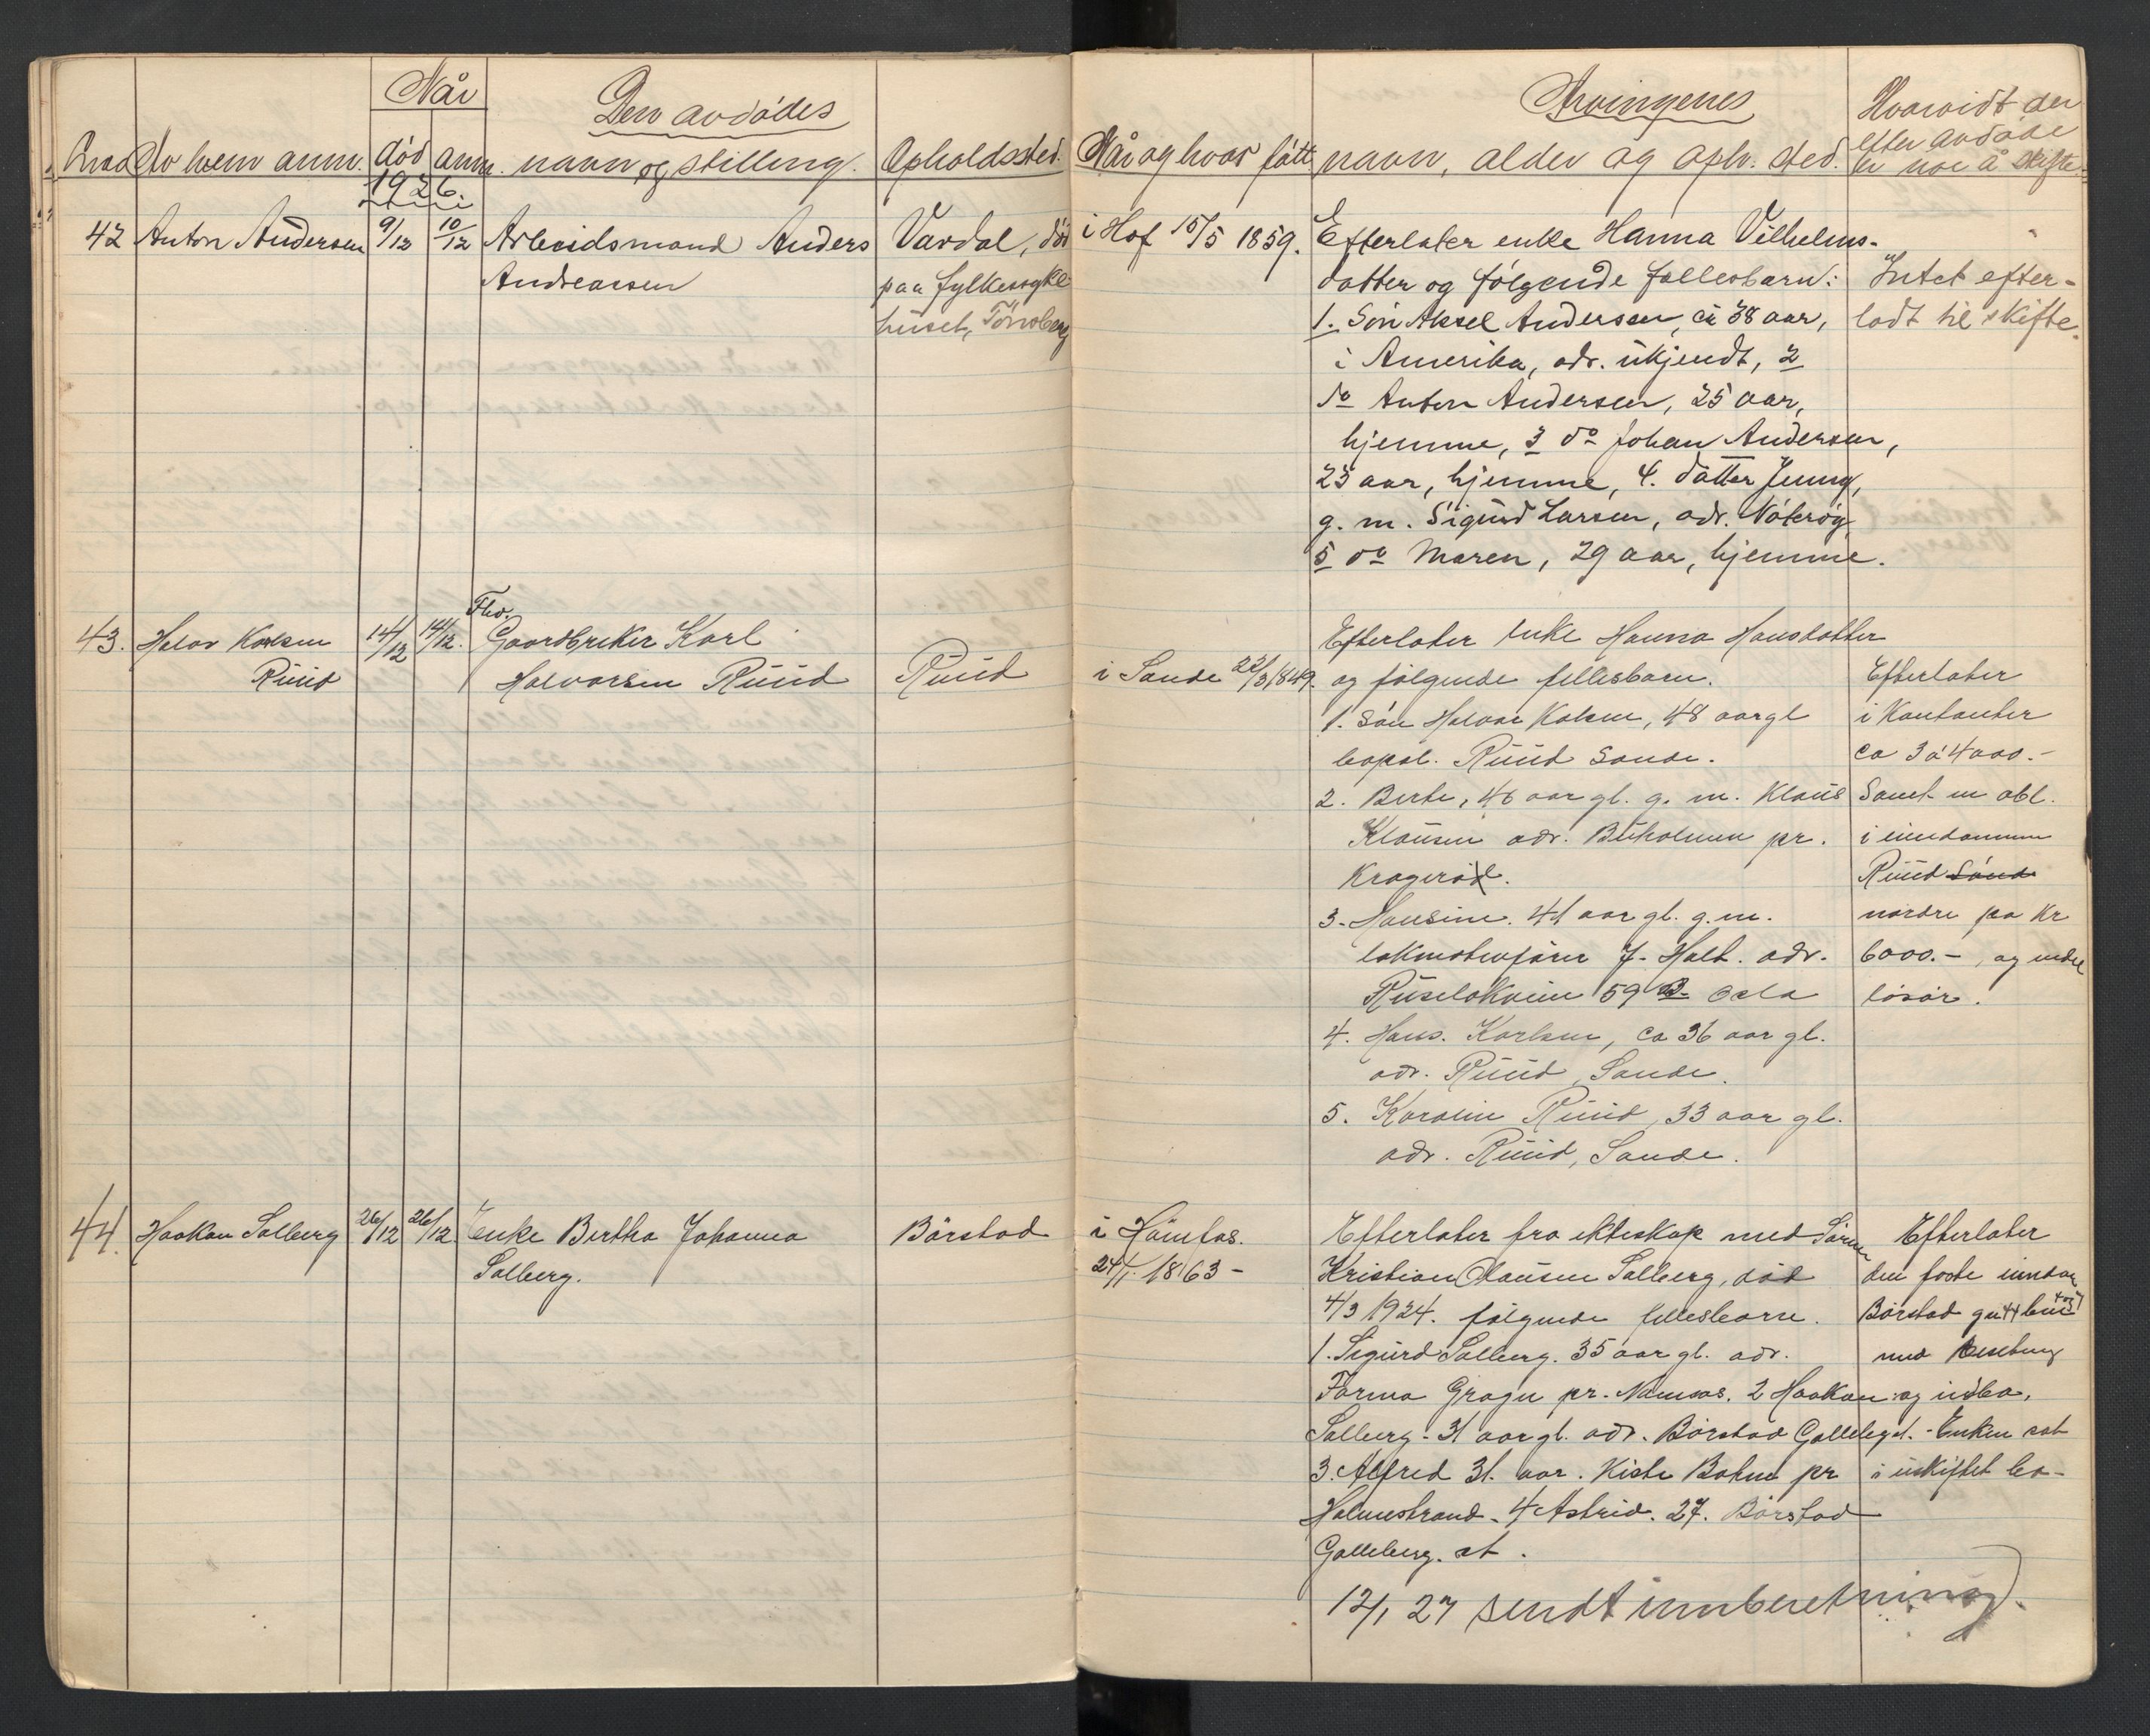 Når
Den avdødes
Arvingenes
Hvorvidt der
efter avdøde
er noe å skifte.
Av hvem anm. død anm. navn og stilling. Opholdssted.
Når og hvor født navn, alder og oph. sted.
1926.
42 Anton Andersen 9/12 10/12 Arbeidsmand Anders
Andreassen
Vardal, død
paa fylkessyke
huset, Tönsberg
i Hof 15/5 1859.
Efterlater enke Hanna Vilhelms-
datter og følgende fellesbarn:
1. Sön Aksel Andersen, ca 38 aar,
i Amerika, adr. ukjendt, 2
do Anton Andersen, 25 aar,
hjemme, 3 do Johan Andersen,
23 aar, hjemme, 4. datter Jenny,
g. m. Sigurd Larsen, adr. Nøterøy,
5 do Maren, 29 aar, hjemme.
Intet efter-
ladt til skifte.
43. Halvor Karlsen
Ruud
14/12 14/12.
Fhv.
Gaardbruker Karl
Halvorsen Ruud
Ruud
i Sande 22/3 1849.
Efterlater enke Hanna Hansdatter
og følgende fellesbarn.
1. Sön Halvor Kalsen, 48 aar gl
bopæl. Ruud Sande.
2. Berte, 46 aar gl. g. m. Klaus
Klausen adr. Buholmen pr.
Kragerø.
3. Hansine. 41 aar gl. g. m.
lokmotivfører J. Holt. adr.
Ruseløkveien 59 B. Oslo
4. Hans. Karlsen, ca 36 aar gl.
adr. Ruud, Sande.
5. Karoline Ruud, 33 aar gl.
adr. Ruud, Sande.
Efterlater
i Kontanter
ca 3 à 4000.-
Samt en obl.
i eiendommen
Ruud Sande
nordre pa kr
6000.-, og endel
løsøre.
44. Haakon Solberg 26/12 26/12. Enke Bertha Johanna
Solberg.
Börstad
i Hönefos.
24/1. 1863-
Efterlater fra ekteskap med Sören
Kristian Olausen Solberg, död
4/3 1924. følgende fellesbarn.
1. Sigurd Solberg. 35 aar gl. adr.
Forma Grogn pr. Namsos. 2 Haakon
Solberg - 31 aar gl. adr. Börstad Galleberg st.
3. Alfred 31. aar. Kiste Bakne pr
Holmestrand - 4 Astrid. 27. Börstad
Galleberg. st.
Efterlater
den faste eiendom
Börstad gn 44 bn
med besetning
og indbo.
- Enken sat
i uskiftet bo-
12/1 27 sendt innberetning.